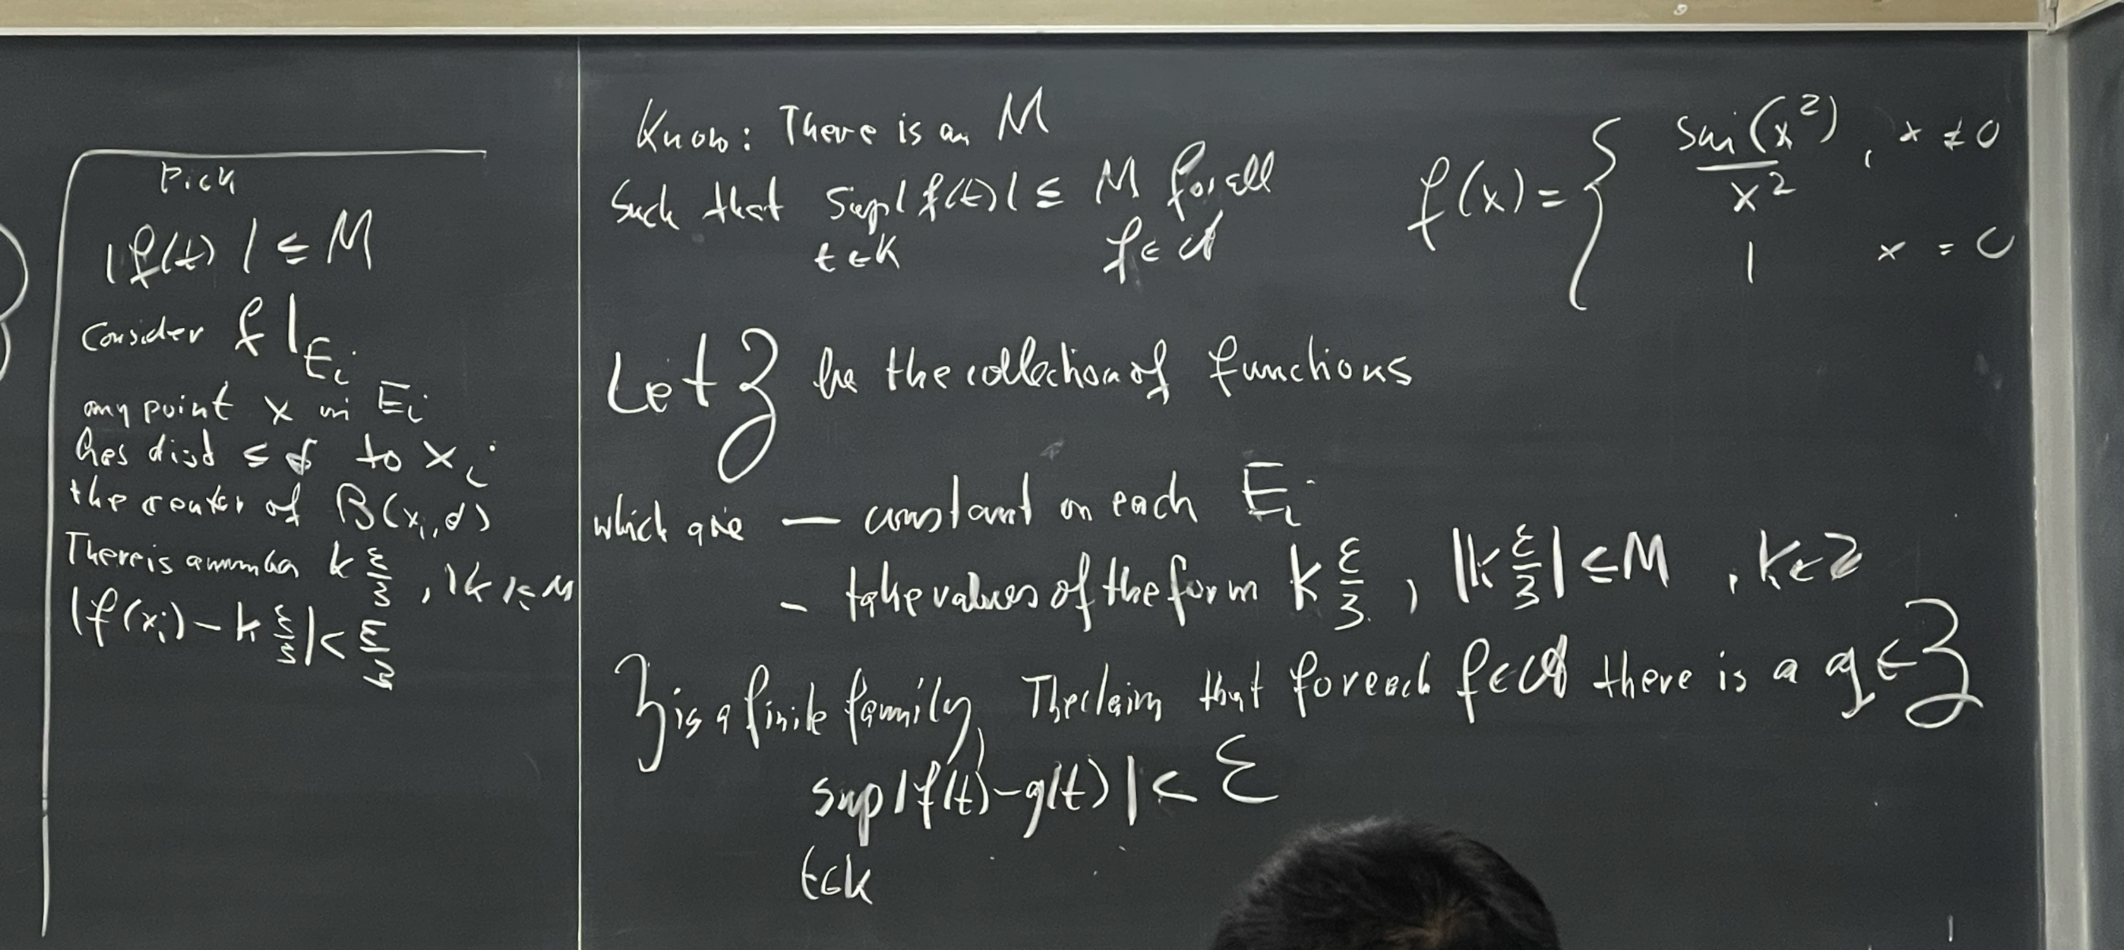 Pick
|f(t)| ≤ M
Consider f|_{E_i}
any point x in E_i
has dist ≤ δ to x_i
the center of B(x_i, δ)
There is a number k ε/3, |k| ≤ M
|f(x_i) - k ε/3| < ε/3
Know: There is an M
Such that sup |f(t)| ≤ M for all
t∈K f∈A
f(x) = { sin(x²)/x², x ≠ 0
1 x = 0
Let Z be the collection of functions
which are — constant on each E_i
- take values of the form k ε/3, |k ε/3| ≤ M, k∈Z
Z is a finite family, The claim that for each f∈A there is a g∈Z
sup |f(t) - g(t)| < ε
t∈K